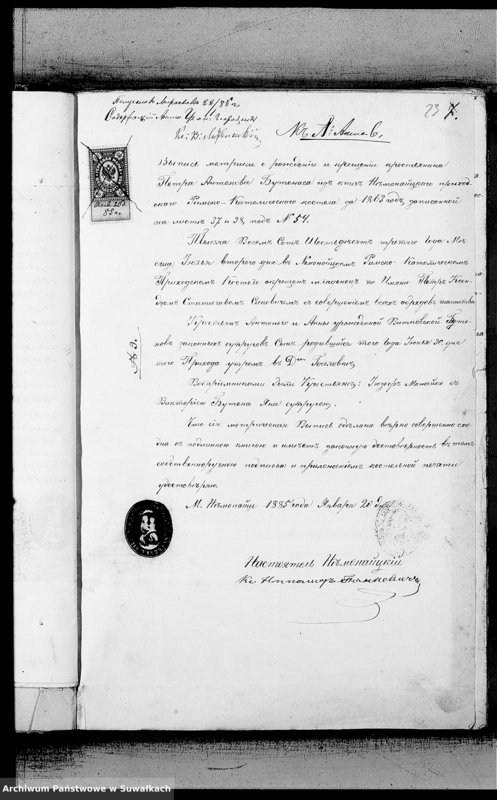 23
Къ № Акта 6,
Выпись метрики о рождении и крещении крестьянина
Петра Антонова Бутенаса изъ книгъ Нѣмонайцкаго приход-
скаго Римско-Католическаго костела за 1863 годъ, записанной
на листѣ 37 и 38, подъ № 54.
Тысяча Восемь Сотъ Шестьдесятъ третьяго Года Мѣ-
сяца Іюля второго дня въ Римско-Католическомъ
Приходскомъ Костелѣ окрещенъ младенецъ по Имени Петръ Ксен-
дзомъ Станиславомъ съ совершеніемъ всѣхъ обрядовъ таинства
Крестьянъ Антонаго и Анны урожденной Буте-
новъ законныхъ супруговъ Сынъ родившійся того Года Іюня 30 дня
того Прихода утромъ въ
Воспріемниками были Крестьяне: съ
Викторіею Бутена Яна супругою.
Что сія метрическая Выпись сдѣлана вѣрно совершенно схо-
дна съ подлинною книгою и имѣетъ законную достовѣрность въ томъ
собственноручною подписью и приложеніемъ костельной печати
удостовѣряю.
М. Нѣмонайце 1885 года Января 20 дня
Настоятель Нѣмонайцкій
Кс
№ 3.
85 г.
Archiwum Państwowe w Suwałkach